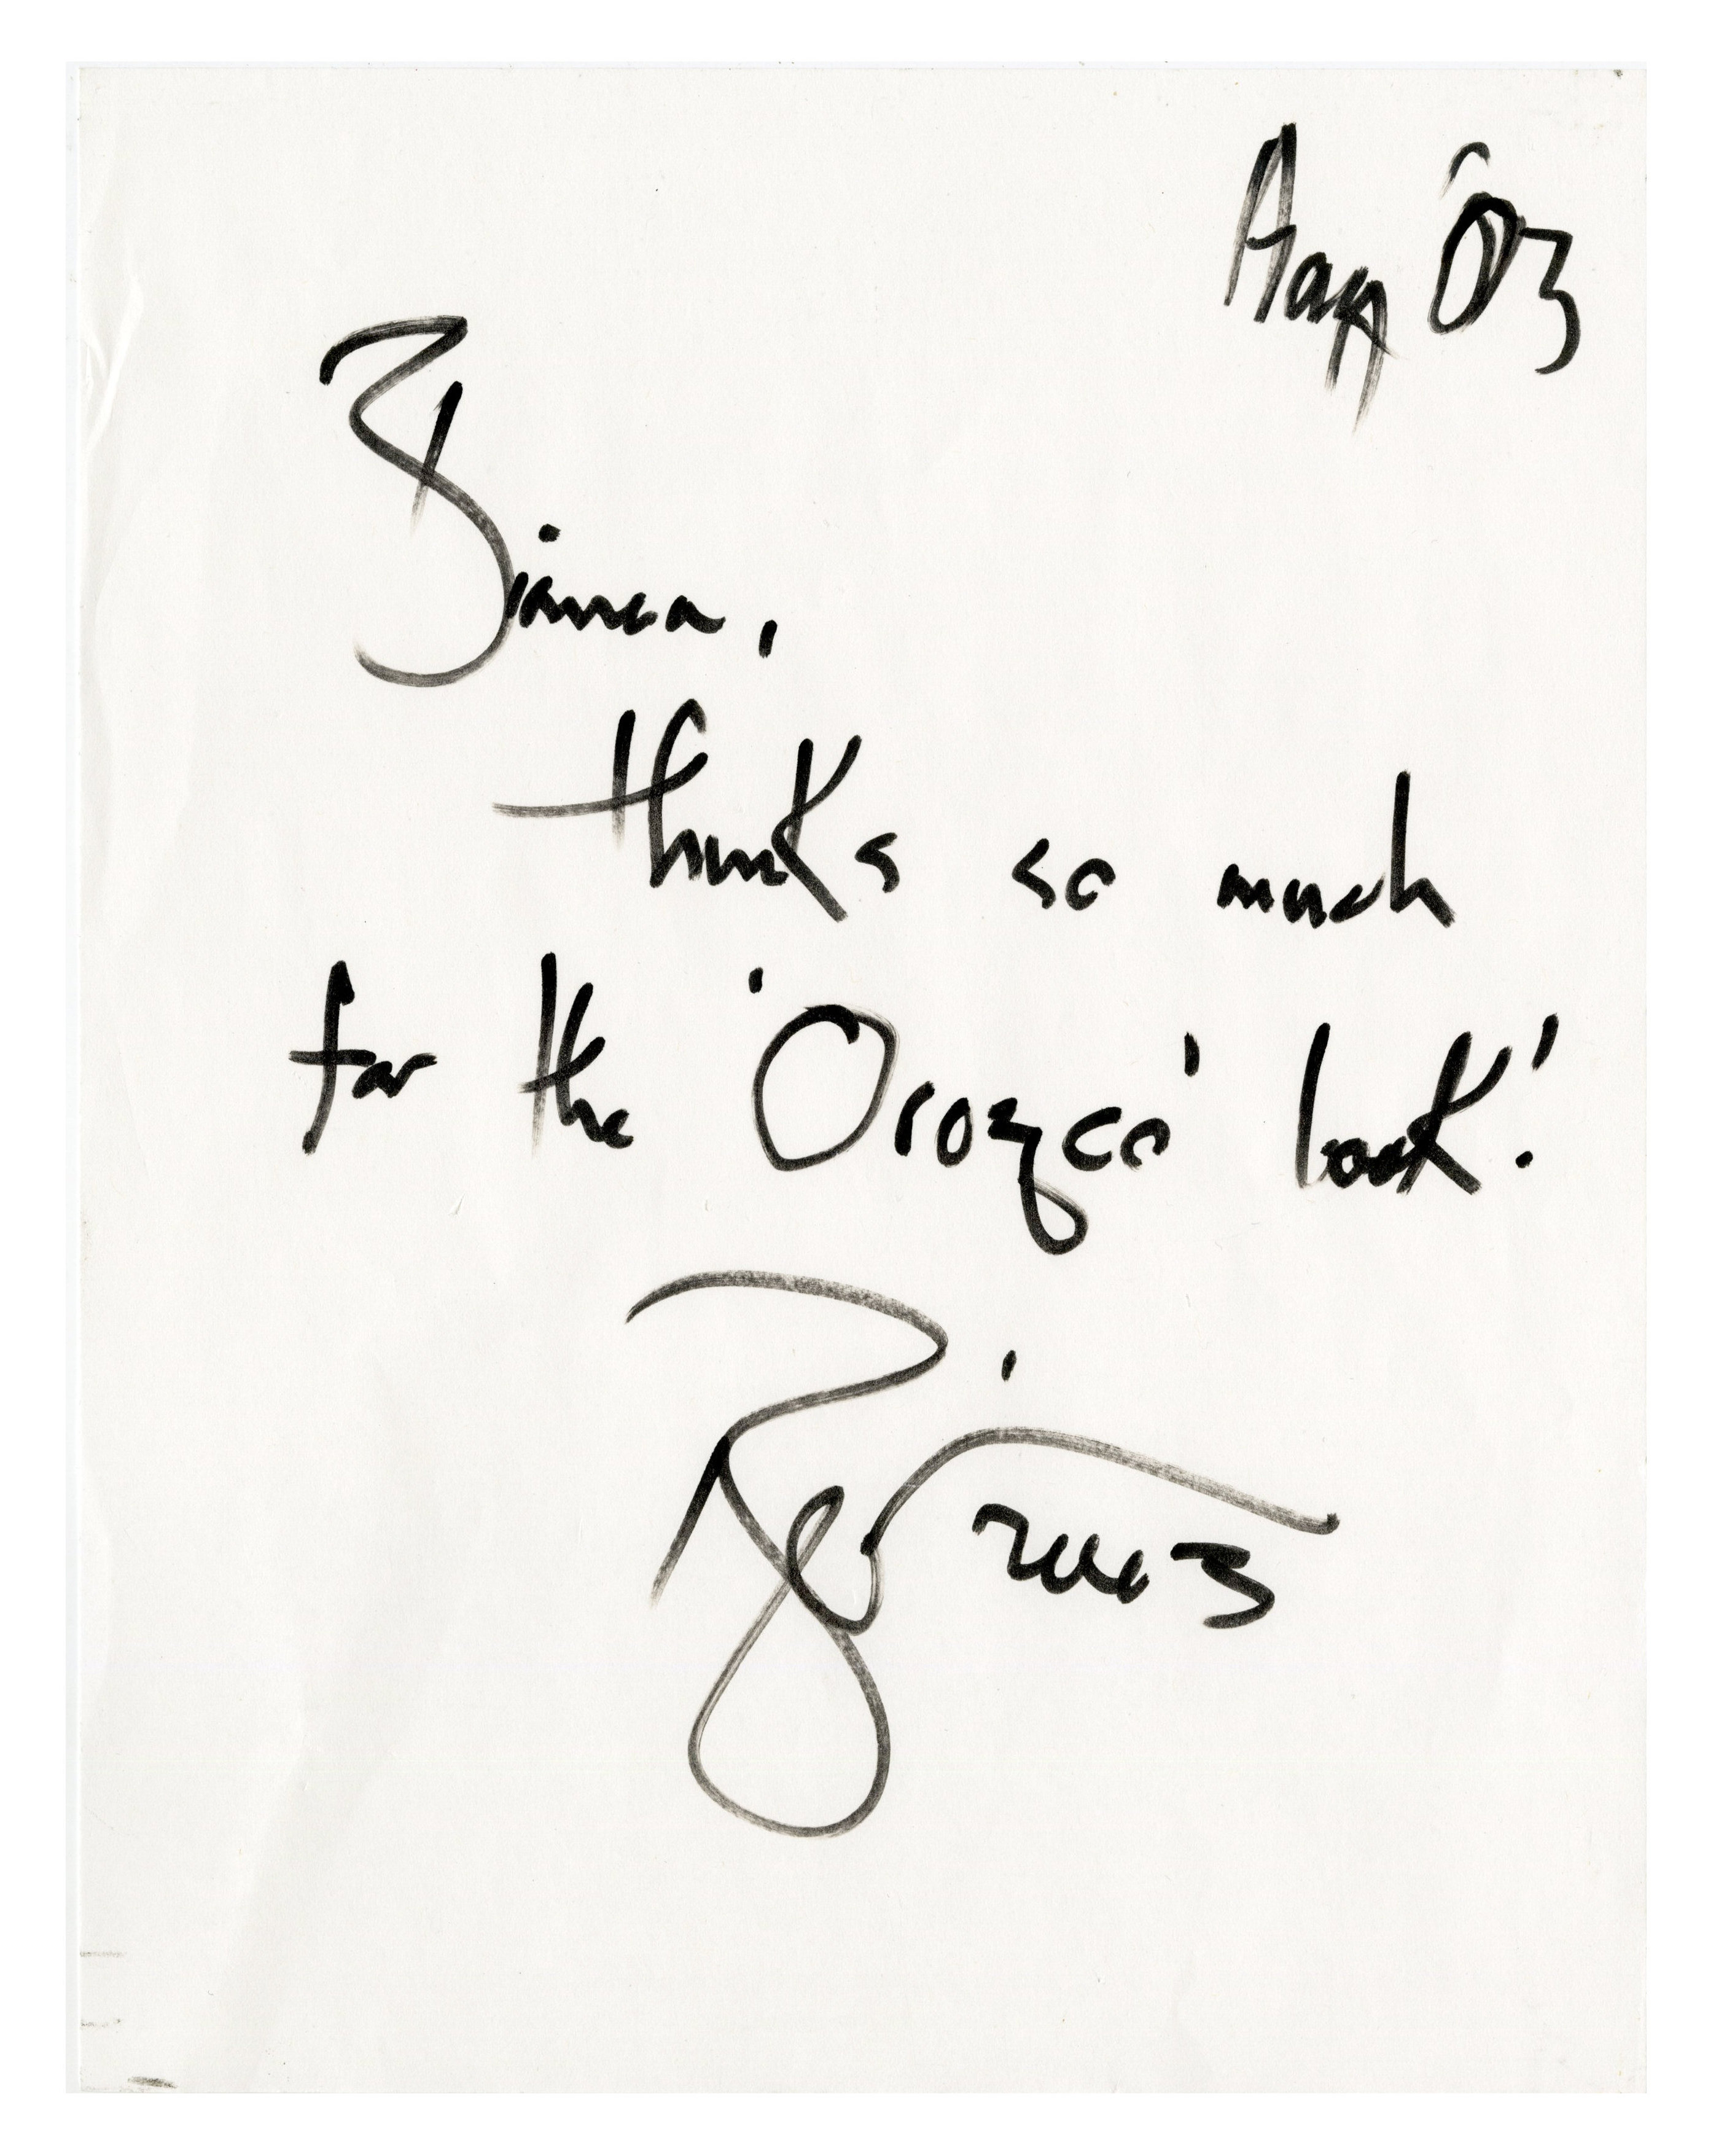 Aug '03
Bianca,
thanks so much
for the 'Orozco' book!
2003